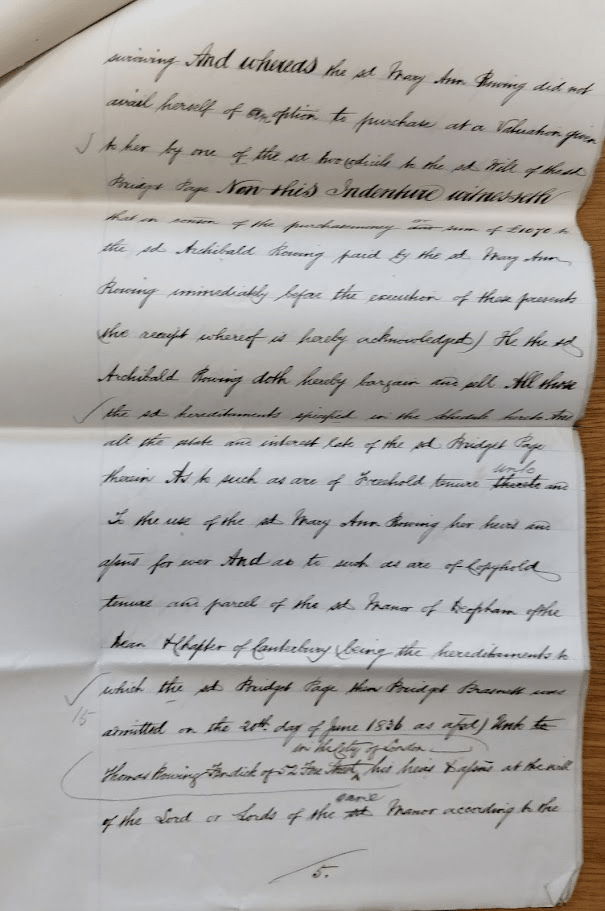 surviving And whereas the sd Mary Ann Rowing did not
avail herself of an option to purchase at a Valuation given
to her by one of the sd two codicils to the sd Will of the sd
Bridget Page Now this Indenture witnesseth
that in conson of the purchasemoney or sum of £1070 to
the sd Archibald Rowing paid by the sd Mary Ann
Rowing immediately before the execution of these presents
(the receipt whereof is hereby acknowledged) He the sd
Archibald Rowing doth hereby bargain and sell All those
the sd hereditaments specified in the Schedule hereto And
all the estate and interest late of the sd Bridget Page
unto
therein As to such as are of Freehold tenure thereto and
To the use of the sd Mary Ann Rowing her heirs and
assns for ever And as to such as are of Copyhold
tenure and parcel of the sd Manor of Deopham of the
Dean & Chapter of Canterbury (being the hereditaments to
which the sd Bridget Page then Bridget Brasnett was
15
admitted on the 20th day of June 1836 as afsd) Unto to
in the City of London
Thomas Rowing Fendick of 52 Fore Street his heirs & assns at the will
same
of the Lord or Lords of the sd Manor according to the
5.